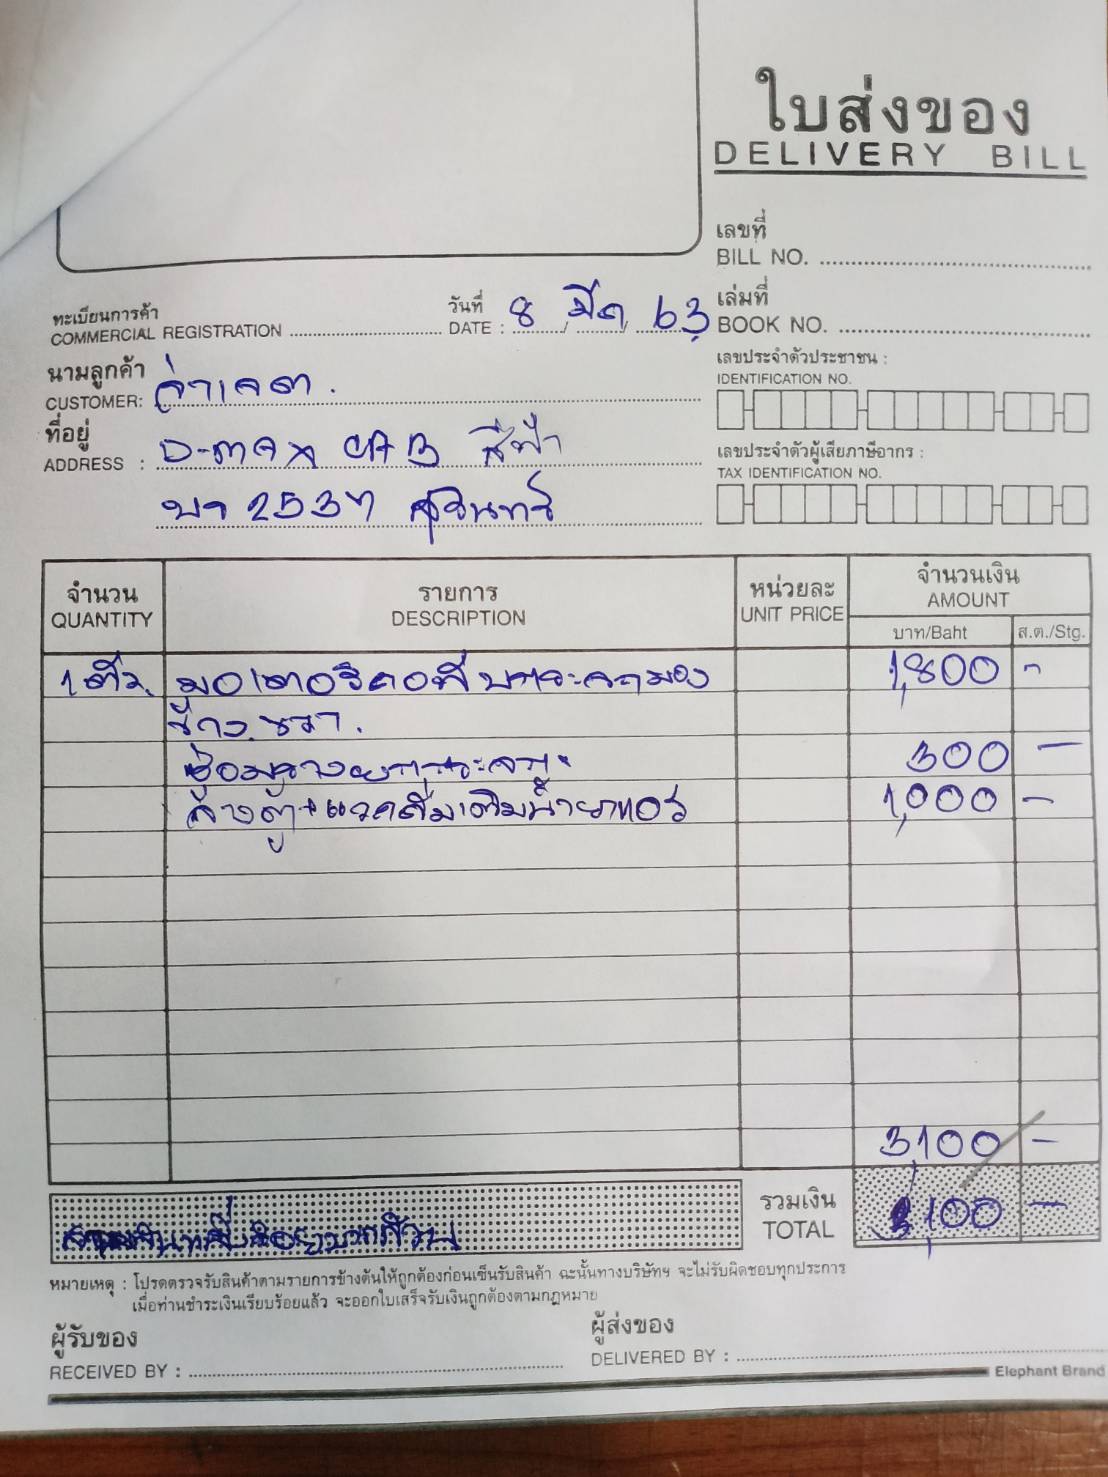 ใบส่งของ
DELIVERY BILL
เลขที่
BILL NO.
ทะเบียนการค้า
COMMERCIAL REGISTRATION
วันที่
DATE : 8 / มีค / 63
เล่มที่
BOOK NO.
นามลูกค้า
CUSTOMER: จ่าเจต.
เลขประจำตัวประชาชน :
IDENTIFICATION NO.
ที่อยู่
ADDRESS : D-max CAB สีฟ้า
เลขประจำตัวผู้เสียภาษีอากร :
TAX IDENTIFICATION NO.
บจ 2537 สุรินทร์
จำนวน
QUANTITY
รายการ
DESCRIPTION
หน่วยละ
UNIT PRICE
จำนวนเงิน
AMOUNT
บาท/Baht
ส.ต./Stg.
1 ตัว. มอเตอร์ 1,800 -
ข้าง.ขวา.
300 -
ล้างตู้+แวคคั่มเติมน้ำยาแอร์ 1,000 -
3,100 -
รวมเงิน
TOTAL
3,100 -
หมายเหตุ : โปรดตรวจรับสินค้าตามรายการข้างต้นให้ถูกต้องก่อนเซ็นรับสินค้า ฉะนั้นทางบริษัทฯ จะไม่รับผิดชอบทุกประการ
เมื่อท่านชำระเงินเรียบร้อยแล้ว จะออกใบเสร็จรับเงินถูกต้องตามกฎหมาย
ผู้รับของ
RECEIVED BY :
ผู้ส่งของ
DELIVERED BY :
Elephant Brand